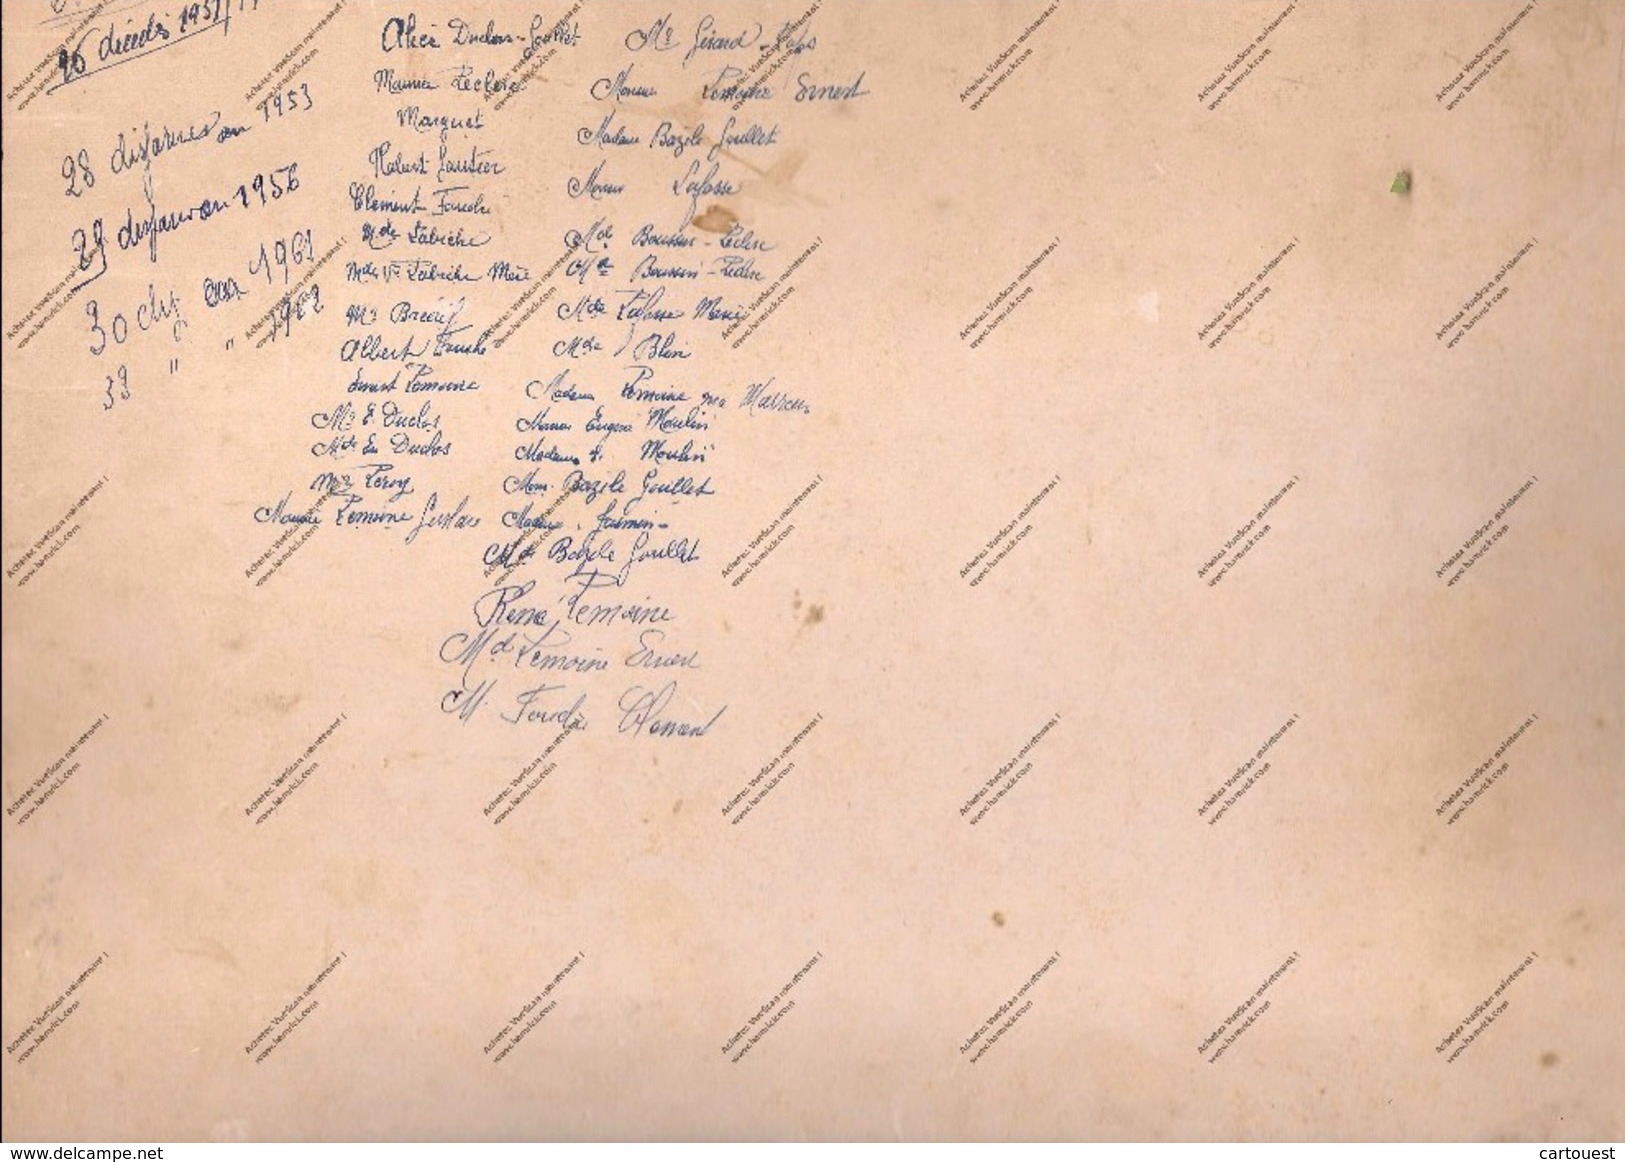 26 décédés 1951
28 disparues en 1953
29 disparu en 1956
30 dis en 1961
33 " " 1962
Alice Duclos-Goullet
Maurice Leclerc
Marguet
Robert Gautier
Clément Fouché
Mde Labiche
Mde Vve Labiche Mère
Mr
Albert Fouché
Ernest Lemoine
Mr E. Duclos
Mde Em Duclos
Mr Leroy
Lemoine Gustave
Mr Gérard
Monsieur Lemoine Ernest
Madame Bazile Goullet
Monsieur Lafosse
Md Boussin-Leclerc
Mr Boussin-Leclerc
Mde Lafosse Marie
Mde Blin
Madame Lemoine née
Eugène Moulin
Madame Moulin
Mons. Bazile Goullet
Madame
Md Bazile Goullet
René Lemoine
Md Lemoine Ernest
M. Fouché Clément
Achetez VueScan maintenant !
www.hamrick.com
delcampe.net
cartouest